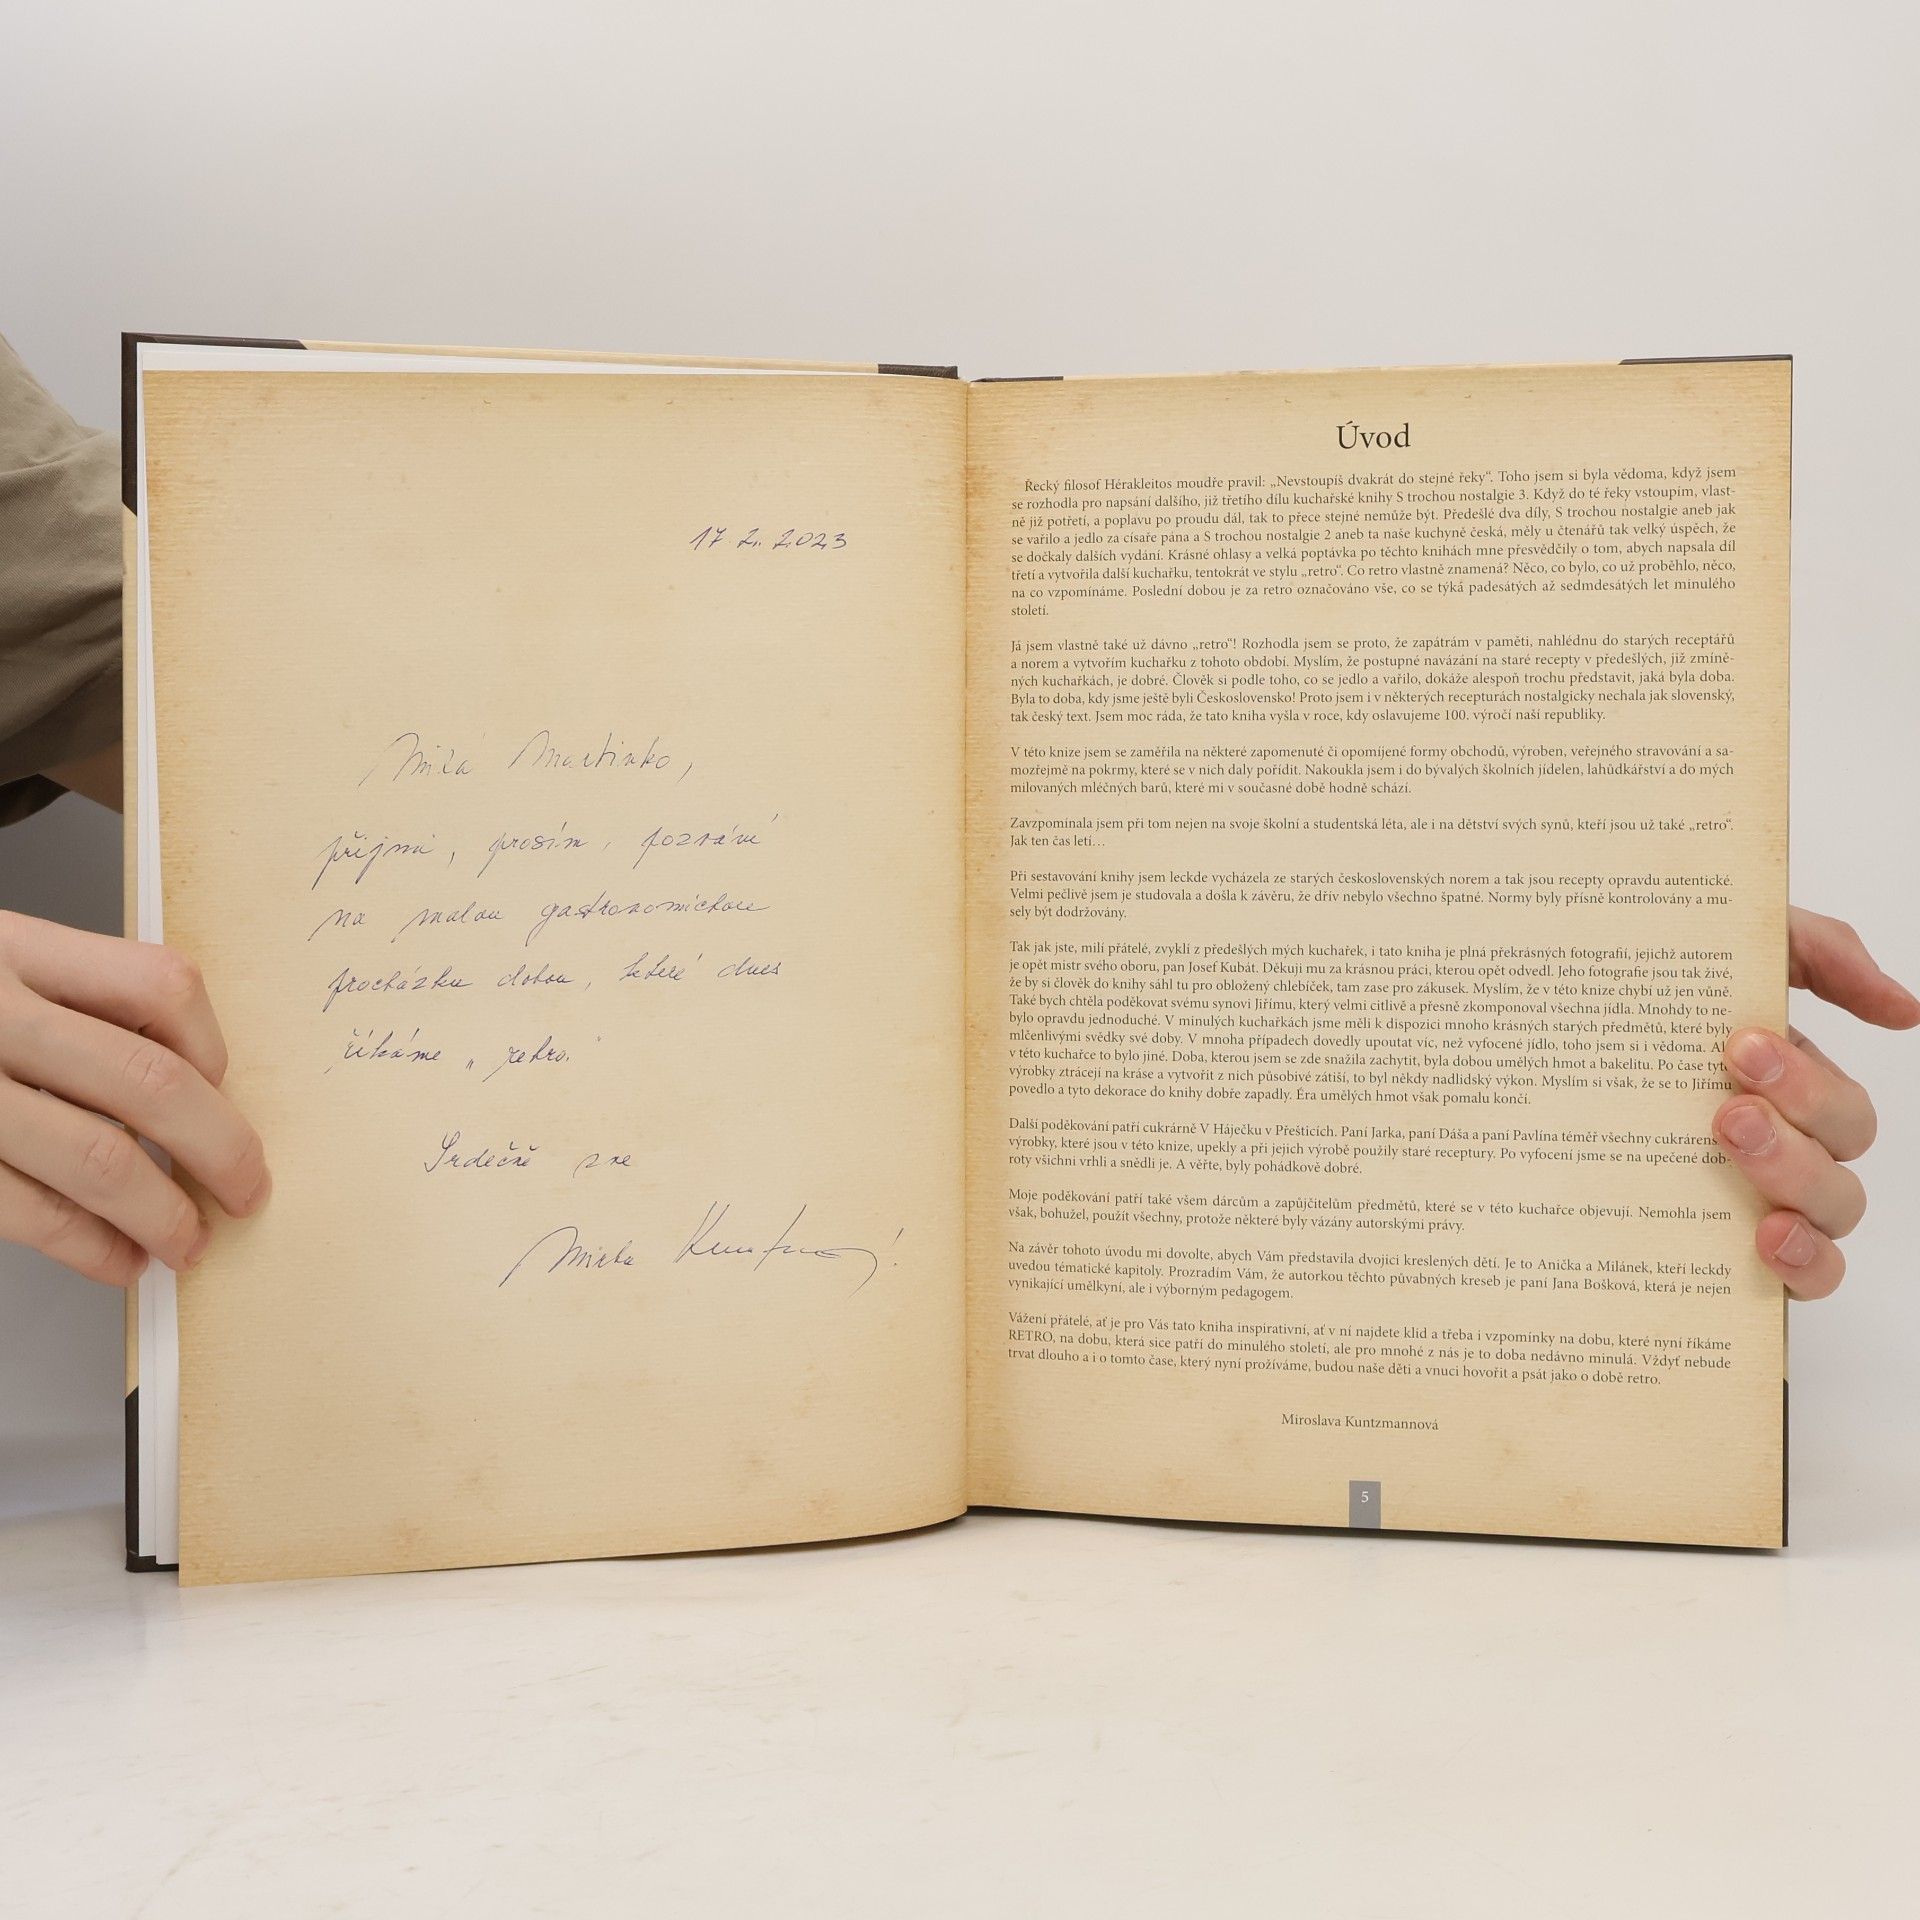 17. 2. 2023
Milá Martinko,
přijmi, prosím, pozvání
na malou gastronomickou
procházku dobou, které dnes
říkáme „retro.“
Srdečně zve
Mirka Kuntzmannová!
Úvod
Řecký filosof Hérakleitos moudře pravil: „Nevstoupíš dvakrát do stejné řeky“. Toho jsem si byla vědoma, když jsem
se rozhodla pro napsání dalšího, již třetího dílu kuchařské knihy S trochou nostalgie 3. Když do té řeky vstoupím, vlast-
ně již potřetí, a poplavu po proudu dál, tak to přece stejné nemůže být. Předešlé dva díly, S trochou nostalgie aneb jak
se vařilo a jedlo za císaře pána a S trochou nostalgie 2 aneb ta naše kuchyně česká, měly u čtenářů tak velký úspěch, že
se dočkaly dalších vydání. Krásné ohlasy a velká poptávka po těchto knihách mne přesvědčily o tom, abych napsala díl
třetí a vytvořila další kuchařku, tentokrát ve stylu „retro“. Co retro vlastně znamená? Něco, co bylo, co už proběhlo, něco,
na co vzpomínáme. Poslední dobou je za retro označováno vše, co se týká padesátých až sedmdesátých let minulého
století.
Já jsem vlastně také už dávno „retro“! Rozhodla jsem se proto, že zapátrám v paměti, nahlédnu do starých receptářů
a norem a vytvořím kuchařku z tohoto období. Myslím, že postupné navázání na staré recepty v předešlých, již zmíně-
ných kuchařkách, je dobré. Člověk si podle toho, co se jedlo a vařilo, dokáže alespoň trochu představit, jaká byla doba.
Byla to doba, kdy jsme ještě byli Československo! Proto jsem i v některých recepturách nostalgicky nechala jak slovenský,
tak český text. Jsem moc ráda, že tato kniha vyšla v roce, kdy oslavujeme 100. výročí naší republiky.
V této knize jsem se zaměřila na některé zapomenuté či opomíjené formy obchodů, výroben, veřejného stravování a sa-
mozřejmě na pokrmy, které se v nich daly pořídit. Nakoukla jsem i do bývalých školních jídelen, lahůdkářství a do mých
milovaných mléčných barů, které mi v současné době hodně schází.
Zavzpomínala jsem při tom nejen na svoje školní a studentská léta, ale i na dětství svých synů, kteří jsou už také „retro“.
Jak ten čas letí…
Při sestavování knihy jsem leckde vycházela ze starých československých norem a tak jsou recepty opravdu autentické.
Velmi pečlivě jsem je studovala a došla k závěru, že dřív nebylo všechno špatné. Normy byly přísně kontrolovány a mu-
sely být dodržovány.
Tak jak jste, milí přátelé, zvykli z předešlých mých kuchařek, i tato kniha je plná překrásných fotografií, jejichž autorem
je opět mistr svého oboru, pan Josef Kubát. Děkuji mu za krásnou práci, kterou opět odvedl. Jeho fotografie jsou tak živé,
že by si člověk do knihy sáhl tu pro obložený chlebíček, tam zase pro zákusek. Myslím, že v této knize chybí už jen vůně.
Také bych chtěla poděkovat svému synovi Jiřímu, který velmi citlivě a přesně zkomponoval všechna jídla. Mnohdy to ne-
bylo opravdu jednoduché. V minulých kuchařkách jsme měli k dispozici mnoho krásných starých předmětů, které byly
mlčenlivými svědky své doby. V mnoha případech dovedly upoutat víc, než vyfocené jídlo, toho jsem si i vědoma. Al
v této kuchařce to bylo jiné. Doba, kterou jsem se zde snažila zachytit, byla dobou umělých hmot a bakelitu. Po čase tyt
výrobky ztrácejí na kráse a vytvořit z nich působivé zátiší, to byl někdy nadlidský výkon. Myslím si však, že se to Jiřímu
povedlo a tyto dekorace do knihy dobře zapadly. Éra umělých hmot však pomalu končí.
Další poděkování patří cukrárně V Háječku v Přešticích. Paní Jarka, paní Dáša a paní Pavlína téměř všechny cukrárens
výrobky, které jsou v této knize, upekly a při jejich výrobě použily staré receptury. Po vyfocení jsme se na upečené dob-
roty všichni vrhli a snědli je. A věřte, byly pohádkově dobré.
Moje poděkování patří také všem dárcům a zapůjčitelům předmětů, které se v této kuchařce objevují. Nemohla jsem
však, bohužel, použít všechny, protože některé byly vázány autorskými právy.
Na závěr tohoto úvodu mi dovolte, abych Vám představila dvojici kreslených dětí. Je to Anička a Milánek, kteří leckdy
uvedou tématické kapitoly. Prozradím Vám, že autorkou těchto půvabných kreseb je paní Jana Bošková, která je nejen
vynikající umělkyní, ale i výborným pedagogem.
Vážení přátelé, ať je pro Vás tato kniha inspirativní, ať v ní najdete klid a třeba i vzpomínky na dobu, které nyní říkáme
RETRO, na dobu, která sice patří do minulého století, ale pro mnohé z nás je to doba nedávno minulá. Vždyť nebude
trvat dlouho a i o tomto čase, který nyní prožíváme, budou naše děti a vnuci hovořit a psát jako o době retro.
Miroslava Kuntzmannová
5